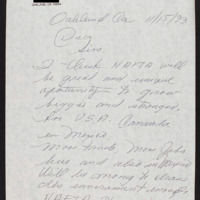 Oakland Ca 11/15/93
Dear
Sirs
I think NAFTA will
be great and unique
oportunity to grow
bigger and stronger
for U.S.A. Canada
an Mexico.
More trade, More Jobs
here and also in Mexico
Will be money to clean
the environment
NAFTA